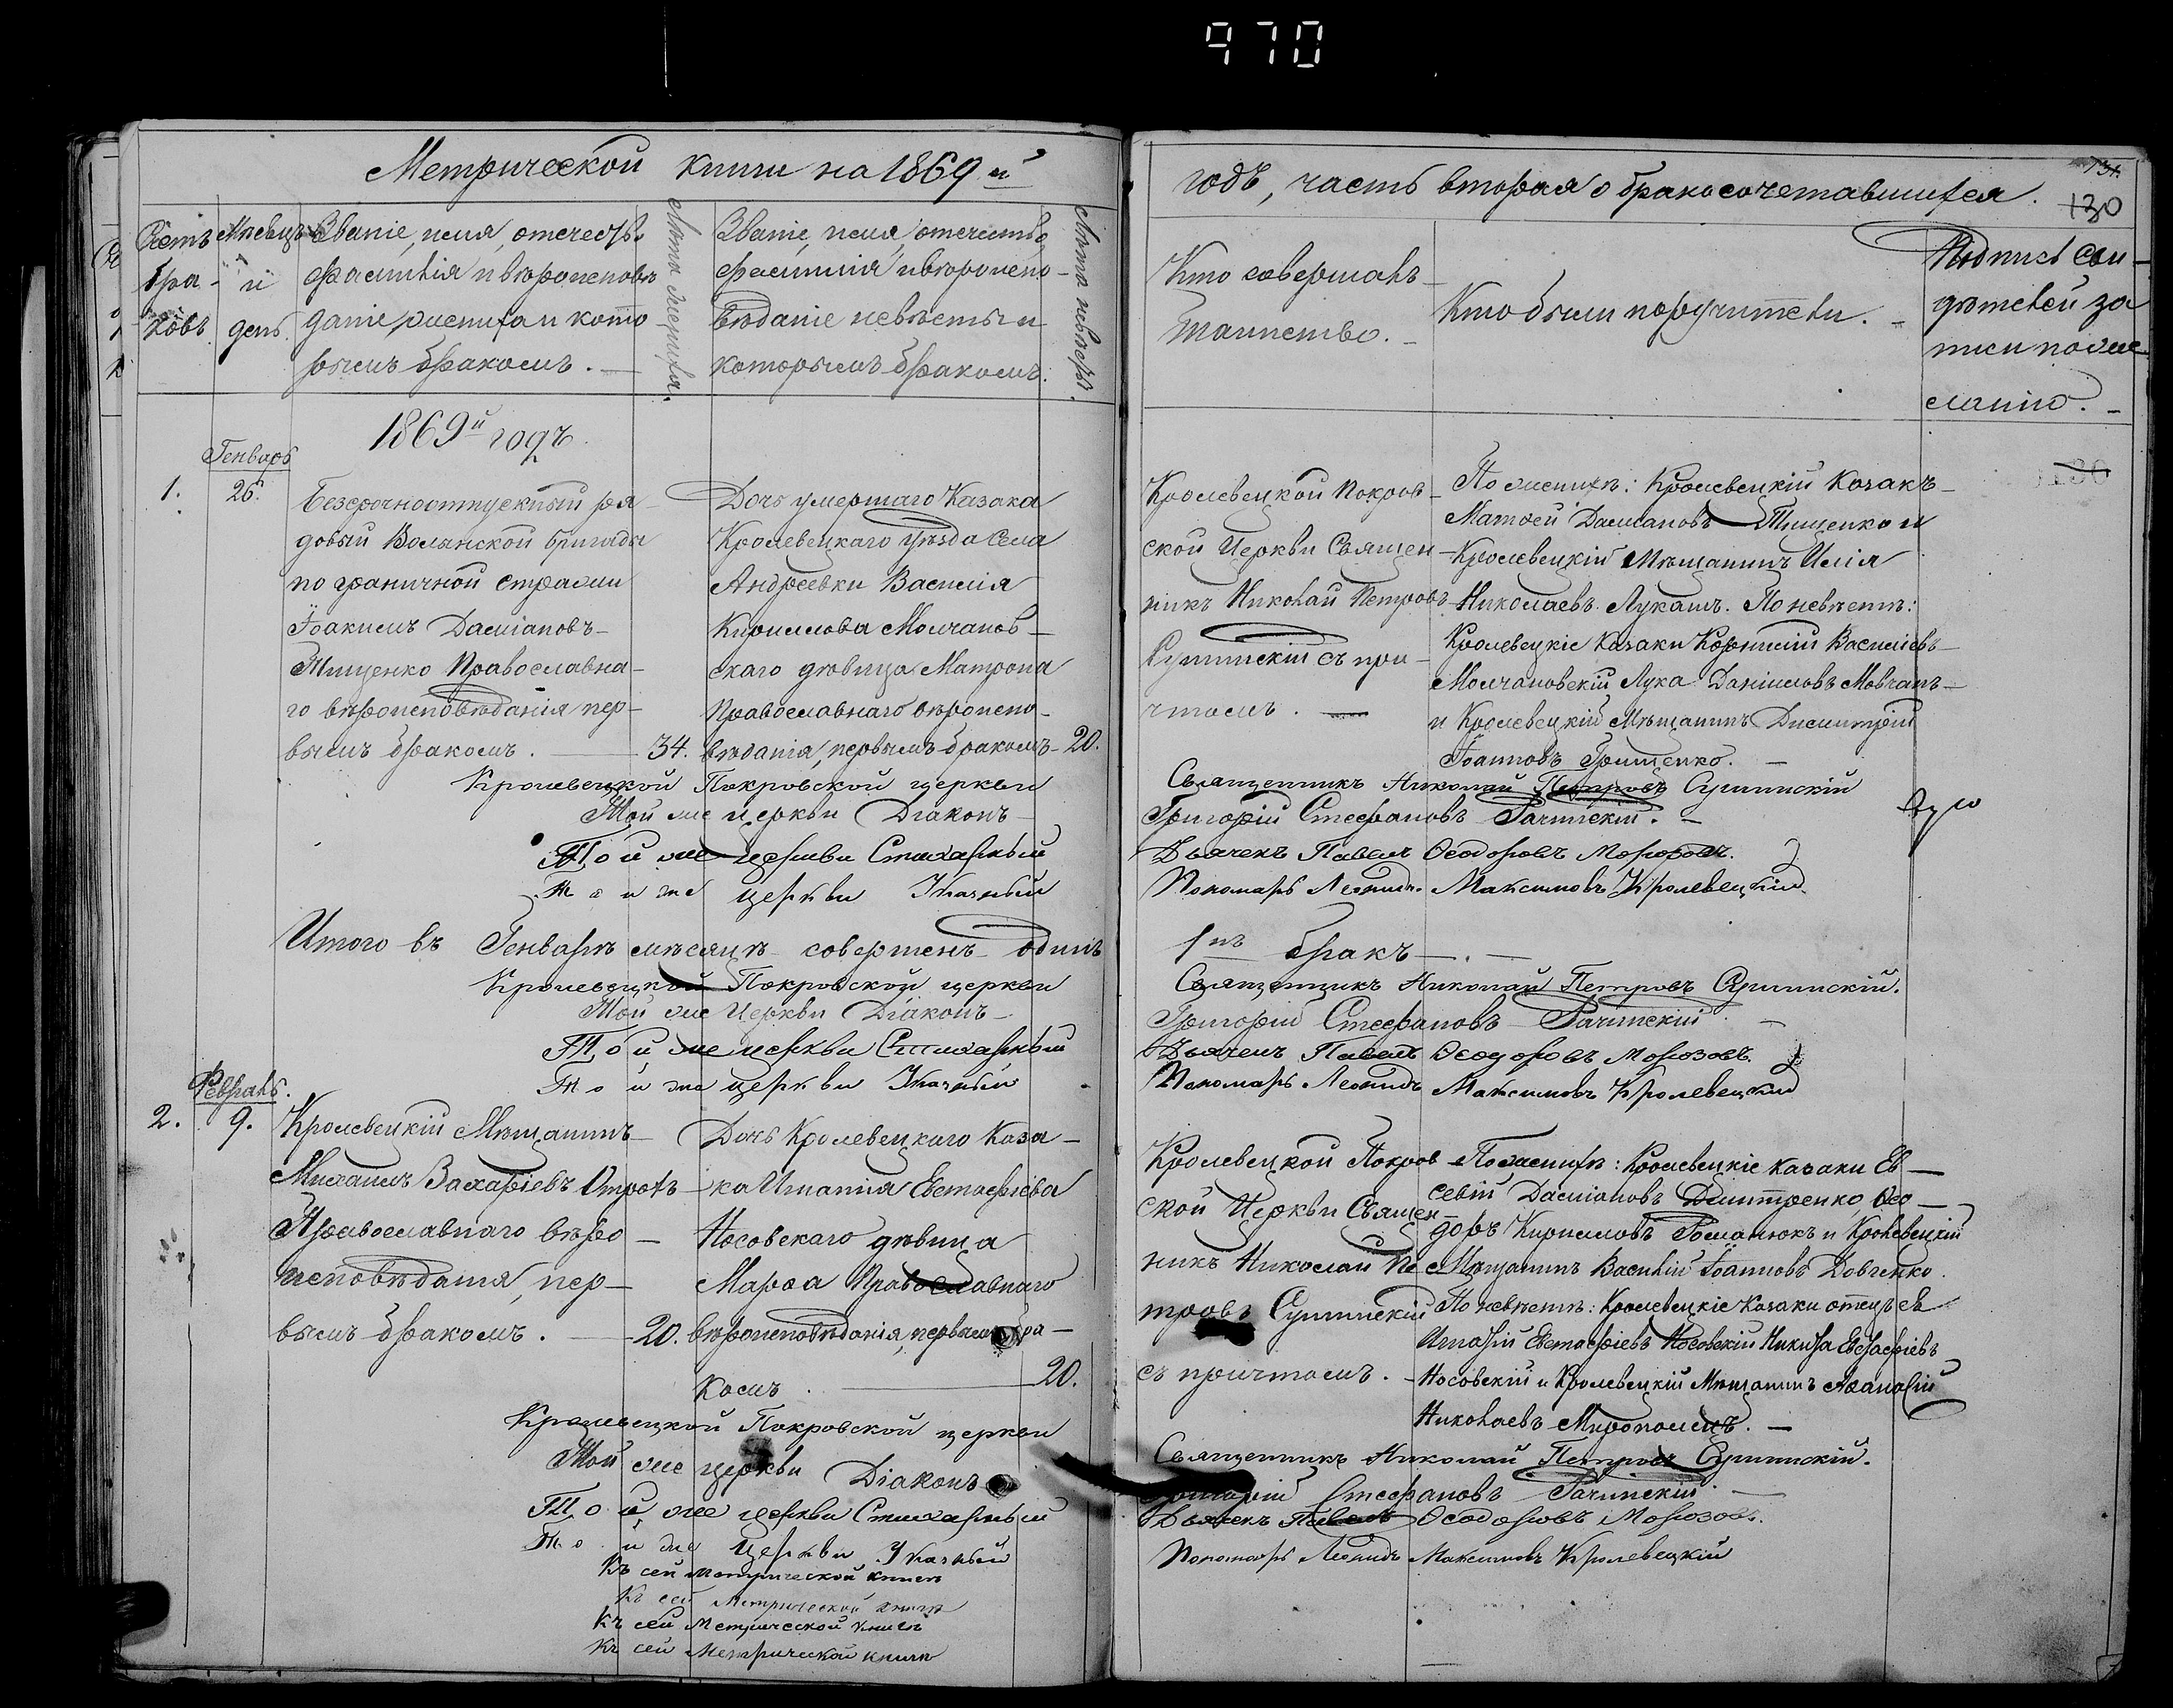 970
Метрической книги на 1869й
годъ, часть вторая о бракосочетавшихся.
131.
130
Счетъ бра-ковъ.
Мѣсяцъ и день.
Званіе, имя, отечество
фамилія и вѣроисповѣ
даніе жениха и кото
рымъ бракомъ.
Лѣта жениха.
Званіе, имя, отечество
фамилія и вѣроиспо-
вѣданіе невѣсты и
которымъ бракомъ.
Лѣта невѣсты.
Кто совершалъ
таинство.
Кто были поручители.
Подпись сви-
дѣтелей за
писи по же
ланію.
1869й годъ.
Генварь
1.
26.
Безсрочноотпускный ря-
довый Волынской бригады
пограничной стражи
Іоакимъ Даміановъ
Тищенко Православна-
го вѣроисповѣданія пер-
вымъ бракомъ.
34.
Дочь умершаго Казака
Кролевецкаго уѣзда Села
Андреевки Василія
Кириллова Молчанов-
скаго дѣвица Матрона
Православнаго вѣроиспо-
вѣданія, первымъ бракомъ
20.
Кролевецкой Покров-
ской Церкви Священ-
никъ Николай Петровъ
Сулимскій съ при-
чтомъ.
По женихѣ: Кролевецкій Козакъ
Матѳей Даміановъ Тищенко и
Кролевецкій Мѣщанинъ Илія
Николаевъ Лукашъ. По невѣстѣ:
Кролевецкіе Казаки Корнилій Василіевъ
Молчановскій Лука Даніиловъ Мовчанъ
и Кролевецкій Мѣщанинъ Димитрій
Іоанновъ Грищенко.
Кролевецкой Покровской церкви Священникъ Николай Петровъ Сулимскій
Той же церкви Діаконъ Григорій Стефановъ Рачинскій.
Той же церкви Стихарный Дьячекъ Павелъ Ѳеодоровъ Морозовъ.
Той же церкви Указный Пономарь Леонидъ Максимовъ Кролевецкій.
Итого въ Генварѣ мѣсяцѣ совершенъ одинъ 1нъ бракъ.
Кролевецкой Покровской церкви Священникъ Николай Петровъ Сулимскій.
Той же Церкви Діаконъ Григорій Стефановъ Рачинскій
Той же церкви Стихарный Дьячекъ Павелъ Ѳеодоровъ Морозовъ.
Той же церкви Указный Пономарь Леонидъ Максимовъ Кролевецкій
Февраль.
2.
9.
Кролевецкій Мѣщанинъ
Михаилъ Захаріевъ
Православнаго вѣро
исповѣданія, пер-
вымъ бракомъ.
20.
Дочь Кролевецкаго Каза-
ка Игнатія Евстафіева
Носовскаго дѣвица
Марѳа Православнаго
вѣроисповѣданія, первымъ бра-
комъ.
20.
Кролевецкой Покров
ской Церкви Священ-
никъ Николай Пе
тровъ Сулимскій
съ причтомъ.
По женихѣ: Кролевецкіе казаки Ев-
севій Даміановъ Дмитренко, Ѳео-
доръ Кирилловъ Романюкъ и Кролевецкій
Мѣщанинъ Василій Іоанновъ Довгенко.
По невѣстѣ: Кролевецкіе Казаки отецъ ея
Игнатій Евстафіевъ Носовскій Никита Евстафіевъ
Носовскій и Кролевецкій Мѣщанинъ Аѳанасій
Николаевъ
Кролевецкой Покровской церкви Священникъ Николай Петровъ Сулимскій.
Той же церкви Діаконъ Григорій Стефановъ Рачинскій.
Той же церкви Стихарный Дьячекъ Павелъ Ѳеодоровъ Морозовъ.
Той же церкви Указный Пономарь Леонидъ Максимовъ Кролевецкій
Къ сей метрической книгѣ
Къ сей Метрической книгѣ
Къ сей Метрической книгѣ
Къ сей Метрической книгѣ